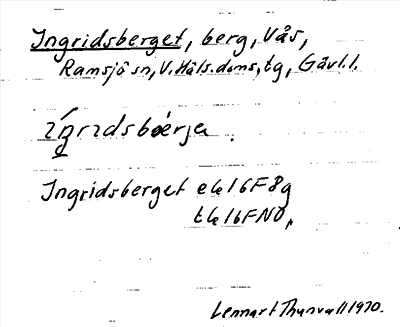 Ingridsberget, berg, Vås,
Ramsjö sn, V. Häls. doms, tg, Gävl. l.
íŋrıdsbœ́rja.
Ingridsberget ek 16F8g
tk 16FNO,
Lennart Thunvall 1970.